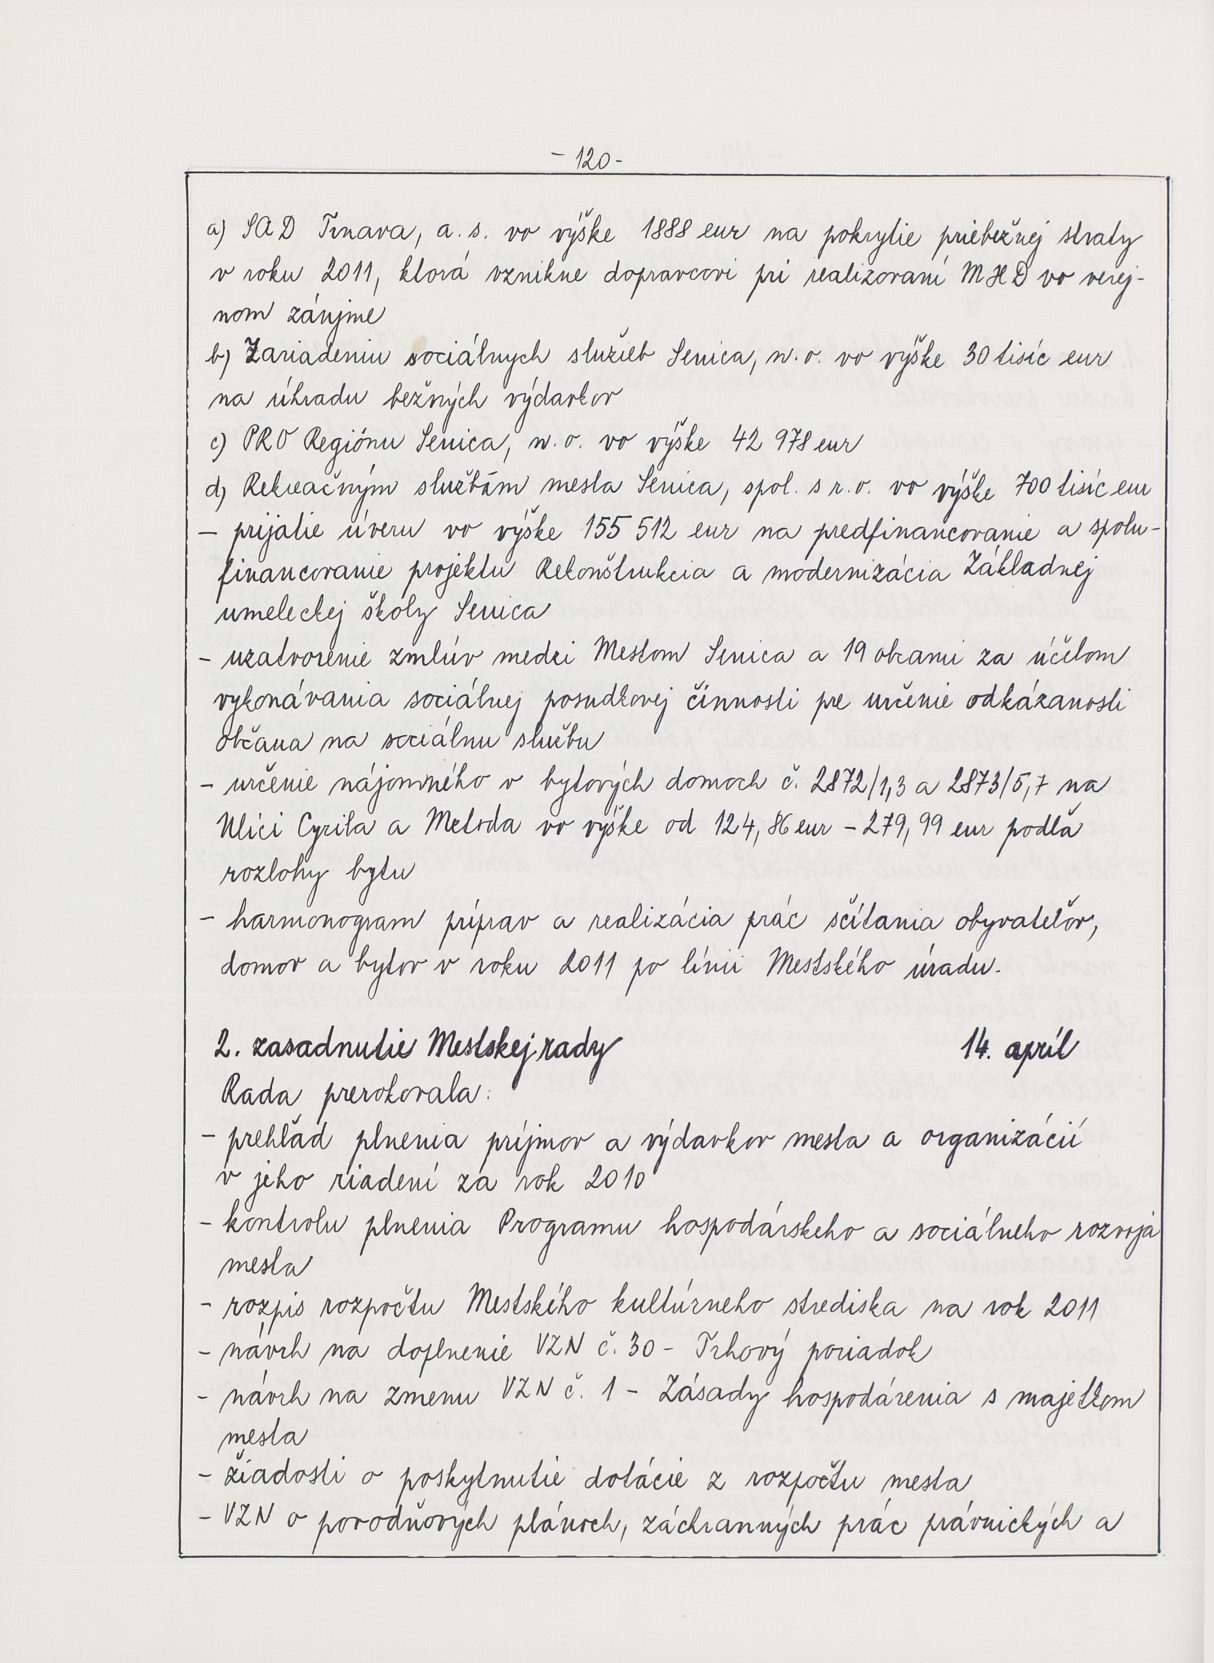 - 120 -
a) SAD Trnava, a. s. vo výške 1888 eur na pokrytie priebežnej straty
v roku 2011, ktorá vznikne dopravcovi pri realizovaní MHD vo verej-
nom záujme
b) Zariadeniu sociálnych služieb Senica, n. o. vo výške 30 tisíc eur
na úhradu bežných výdavkov
c) PRO Regiónu Senica, n. o. vo výške 42 978 eur
d) Rekreačným službám mesta Senica, spol. s r. o. vo výške 700 tisíc eur
— prijatie úveru vo výške 155 512 eur na predfinancovanie a spolu-
financovanie projektu Rekonštrukcia a modernizácia Základnej
umeleckej školy Senica
- uzatvorenie zmlúv medzi Mestom Senica a 19 obcami za účelom
vykonávania sociálnej posudkovej činnosti pre určenie odkázanosti
občana na sociálnu službu
- určenie nájomného v bytových domoch č. 2872/1,3 a 2873/5,7 na
Ulici Cyrila a Metoda vo výške od 124,86 eur - 279,99 eur podľa
rozlohy bytu
- harmonogram príprav a realizácia prác sčítania obyvateľov,
domov a bytov v roku 2011 po línii Mestského úradu.
2. zasadnutie Mestskej rady 14. apríl
Rada prerokovala:
- prehľad plnenia príjmov a výdavkov mesta a organizácií
v jeho riadení za rok 2010
- kontrolu plnenia Programu hospodárskeho a sociálneho rozvoja
mesta
- rozpis rozpočtu Mestského kultúrneho strediska na rok 2011
- návrh na doplnenie VZN č. 30 - Trhový poriadok
- návrh na zmenu VZN č. 1 - Zásady hospodárenia s majetkom
mesta
- žiadosti o poskytnutie dotácie z rozpočtu mesta
- VZN o povodňových plánoch, záchranných prác právnických a